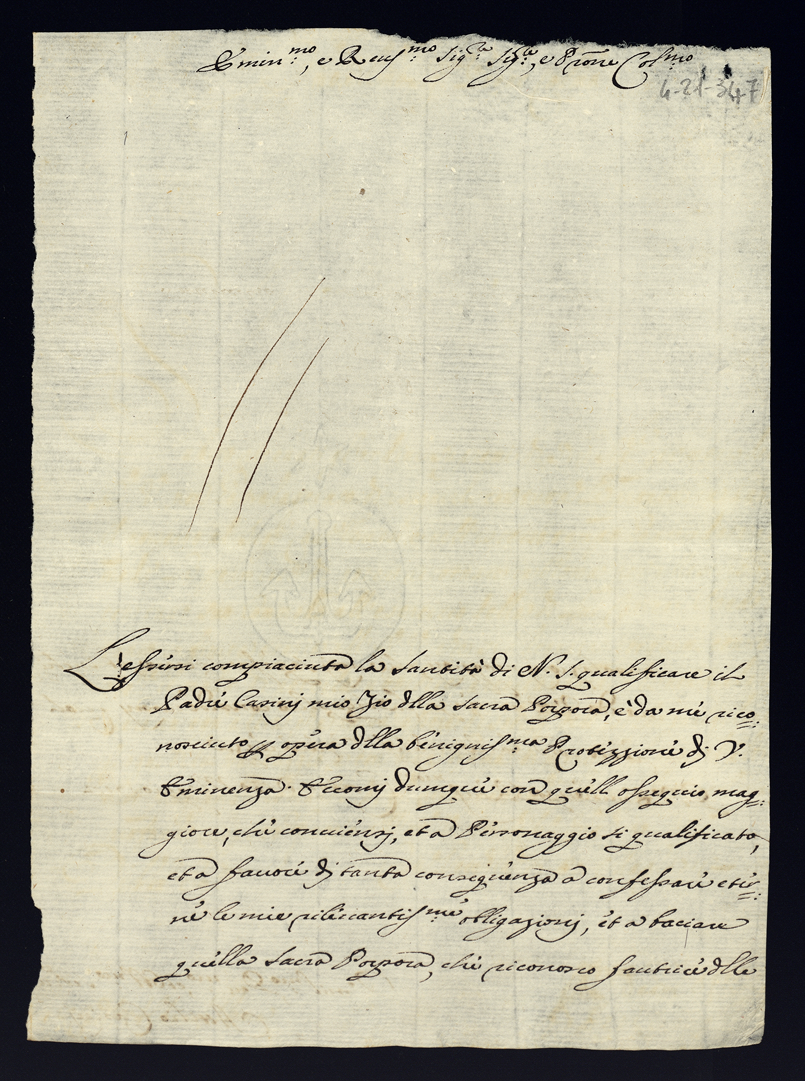 Emin.mo, e Reus.mo Sig.re Sig.re, e Prōne Col.mo
4-21-347
L'essersi compiaciuta la Santità di N. S. qualificare il
Padre Casinj mio Zio dlla Sacra Porpora, è da me rico=
nosciuto p opera dlla benignis.ma Protezzione di V.
Eminenza. Eccomj dunque con quell ossequio mag=
giore, che conviensj, et a Personaggio si qualificato,
et a fauore dj tanta conseguenza a confessare et
le mie rileuantis.me obligazionj, et a baciare
quella Sacra Porpora, che riconosco fautrice dlle